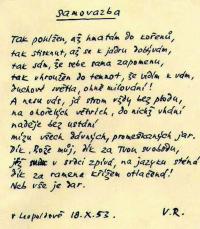 Samovazba
Tak pohlížen, až hmatám do kořenů,
tak stisknut, až se k jádru dobývám,
tak sám, že sebe sama zapomenu,
tak vhroužen do temnot, že vidím k vám,
duchové světla, ohně milování!
A nesu vás, já strom vždy bez plodu,
na okoralých větvích, do nichž vhání
naděje bez ustání
mízu všech dávných, promeškaných jar.
Dík, Bože můj, dík za Tvou svobodu,
jež v srdci zpívá, na jazyku sténá
dík za ramena křížem otlačená!
Neb vše je dar.
v Leopoldově 18.X.53. V.R.